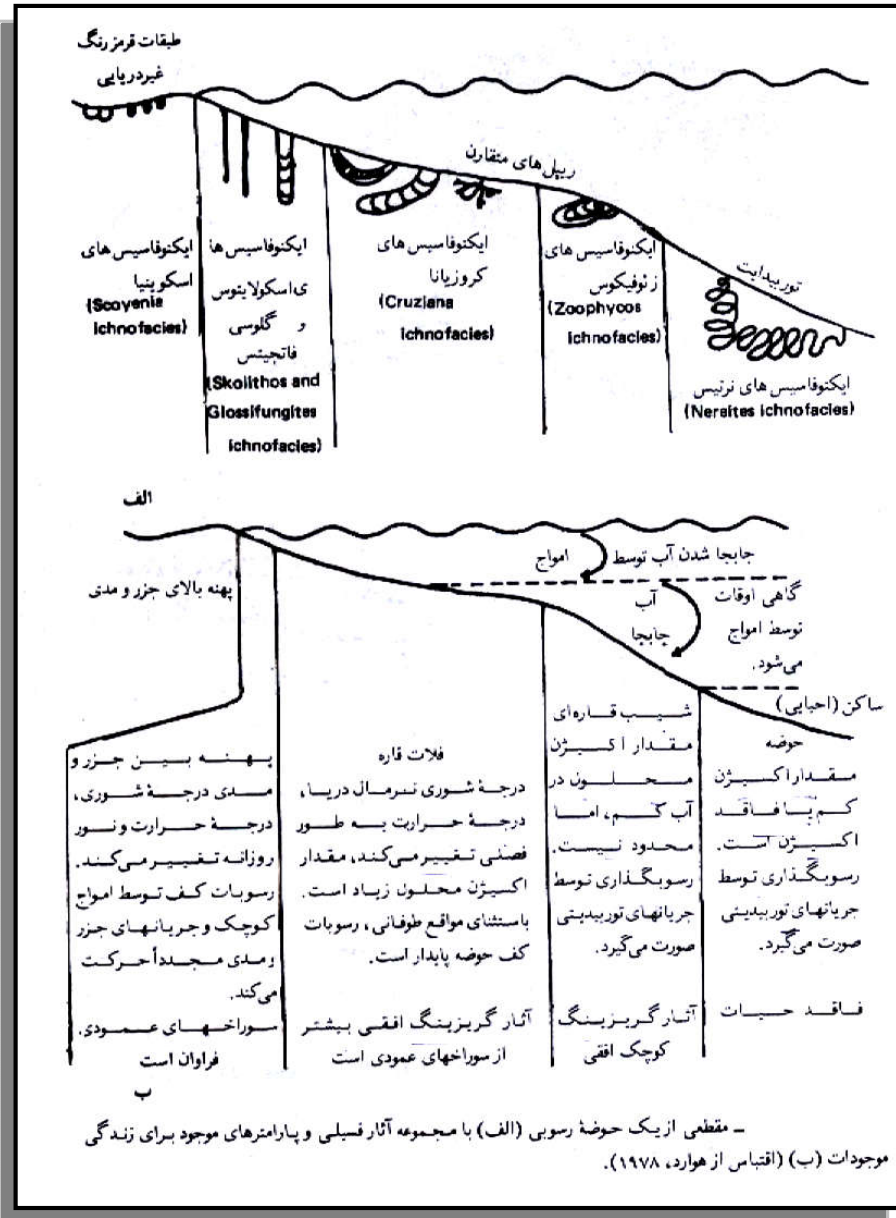 طبقات قرمز رنگ
غیردریایی
ریپل های متقارن
توربیدایت
ایکنوفاسیس های
اسکوینیا
(Scoyenia
ichnofacies)
ایکنوفاسیس ها
ی اسکولایتوس
و گلوسی
فانجیتس
(Skolithos and
Glossifungites
ichnofacies)
ایکنوفاسیس های
کروزیانا
(Cruziana
ichnofacies)
ایکنوفاسیس های
زئوفیکوس
(Zoophycos
ichnofacies)
ایکنوفاسیس های نرتیس
(Nereites ichnofacies)
الف
جابجا شدن آب توسط امواج
گاهی اوقات آب
توسط امواج جابجا
می شود.
ساکن (احیایی)
پهنه بالای جزر و مدی
پهنه بین جزر و
مدی درجهٔ شوری،
درجهٔ حرارت و نور
روزانه تغییر می‌کند.
رسوبات کف توسط امواج
کوچک و جریانهای جزر
و مدی مجدداً حرکت
می‌کند.
سوراخهای عمودی.
فراوان است
فلات قاره
درجهٔ شوری نرمال دریا،
درجهٔ حرارت به طور
فصلی تغییر می‌کند، مقدار
اکسیژن محلول زیاد است.
باستثنای مواقع طوفانی، رسوبات
کف حوضه پایدار است.
آثار گریزینگ افقی بیشتر
از سوراخهای عمودی است
شیب قاره‌ای
مقدار اکسیژن
محلول در
آب کم، اما
محدود نیست.
رسوبگذاری توسط
جریانهای توربیدیتی
صورت می‌گیرد.
آثار گریزینگ
کوچک افقی
حوضه
مقدار اکسیژن
کم یا فاقد
اکسیژن است.
رسوبگذاری توسط
جریانهای توربیدیتی
صورت می‌گیرد.
فاقد حیات
ب
ـ مقطعی از یک حوضهٔ رسوبی (الف) با مجموعه آثار فسیلی و پارامترهای موجود برای زندگی
موجودات (ب) (اقتباس از هوارد، ۱۹۷۸).